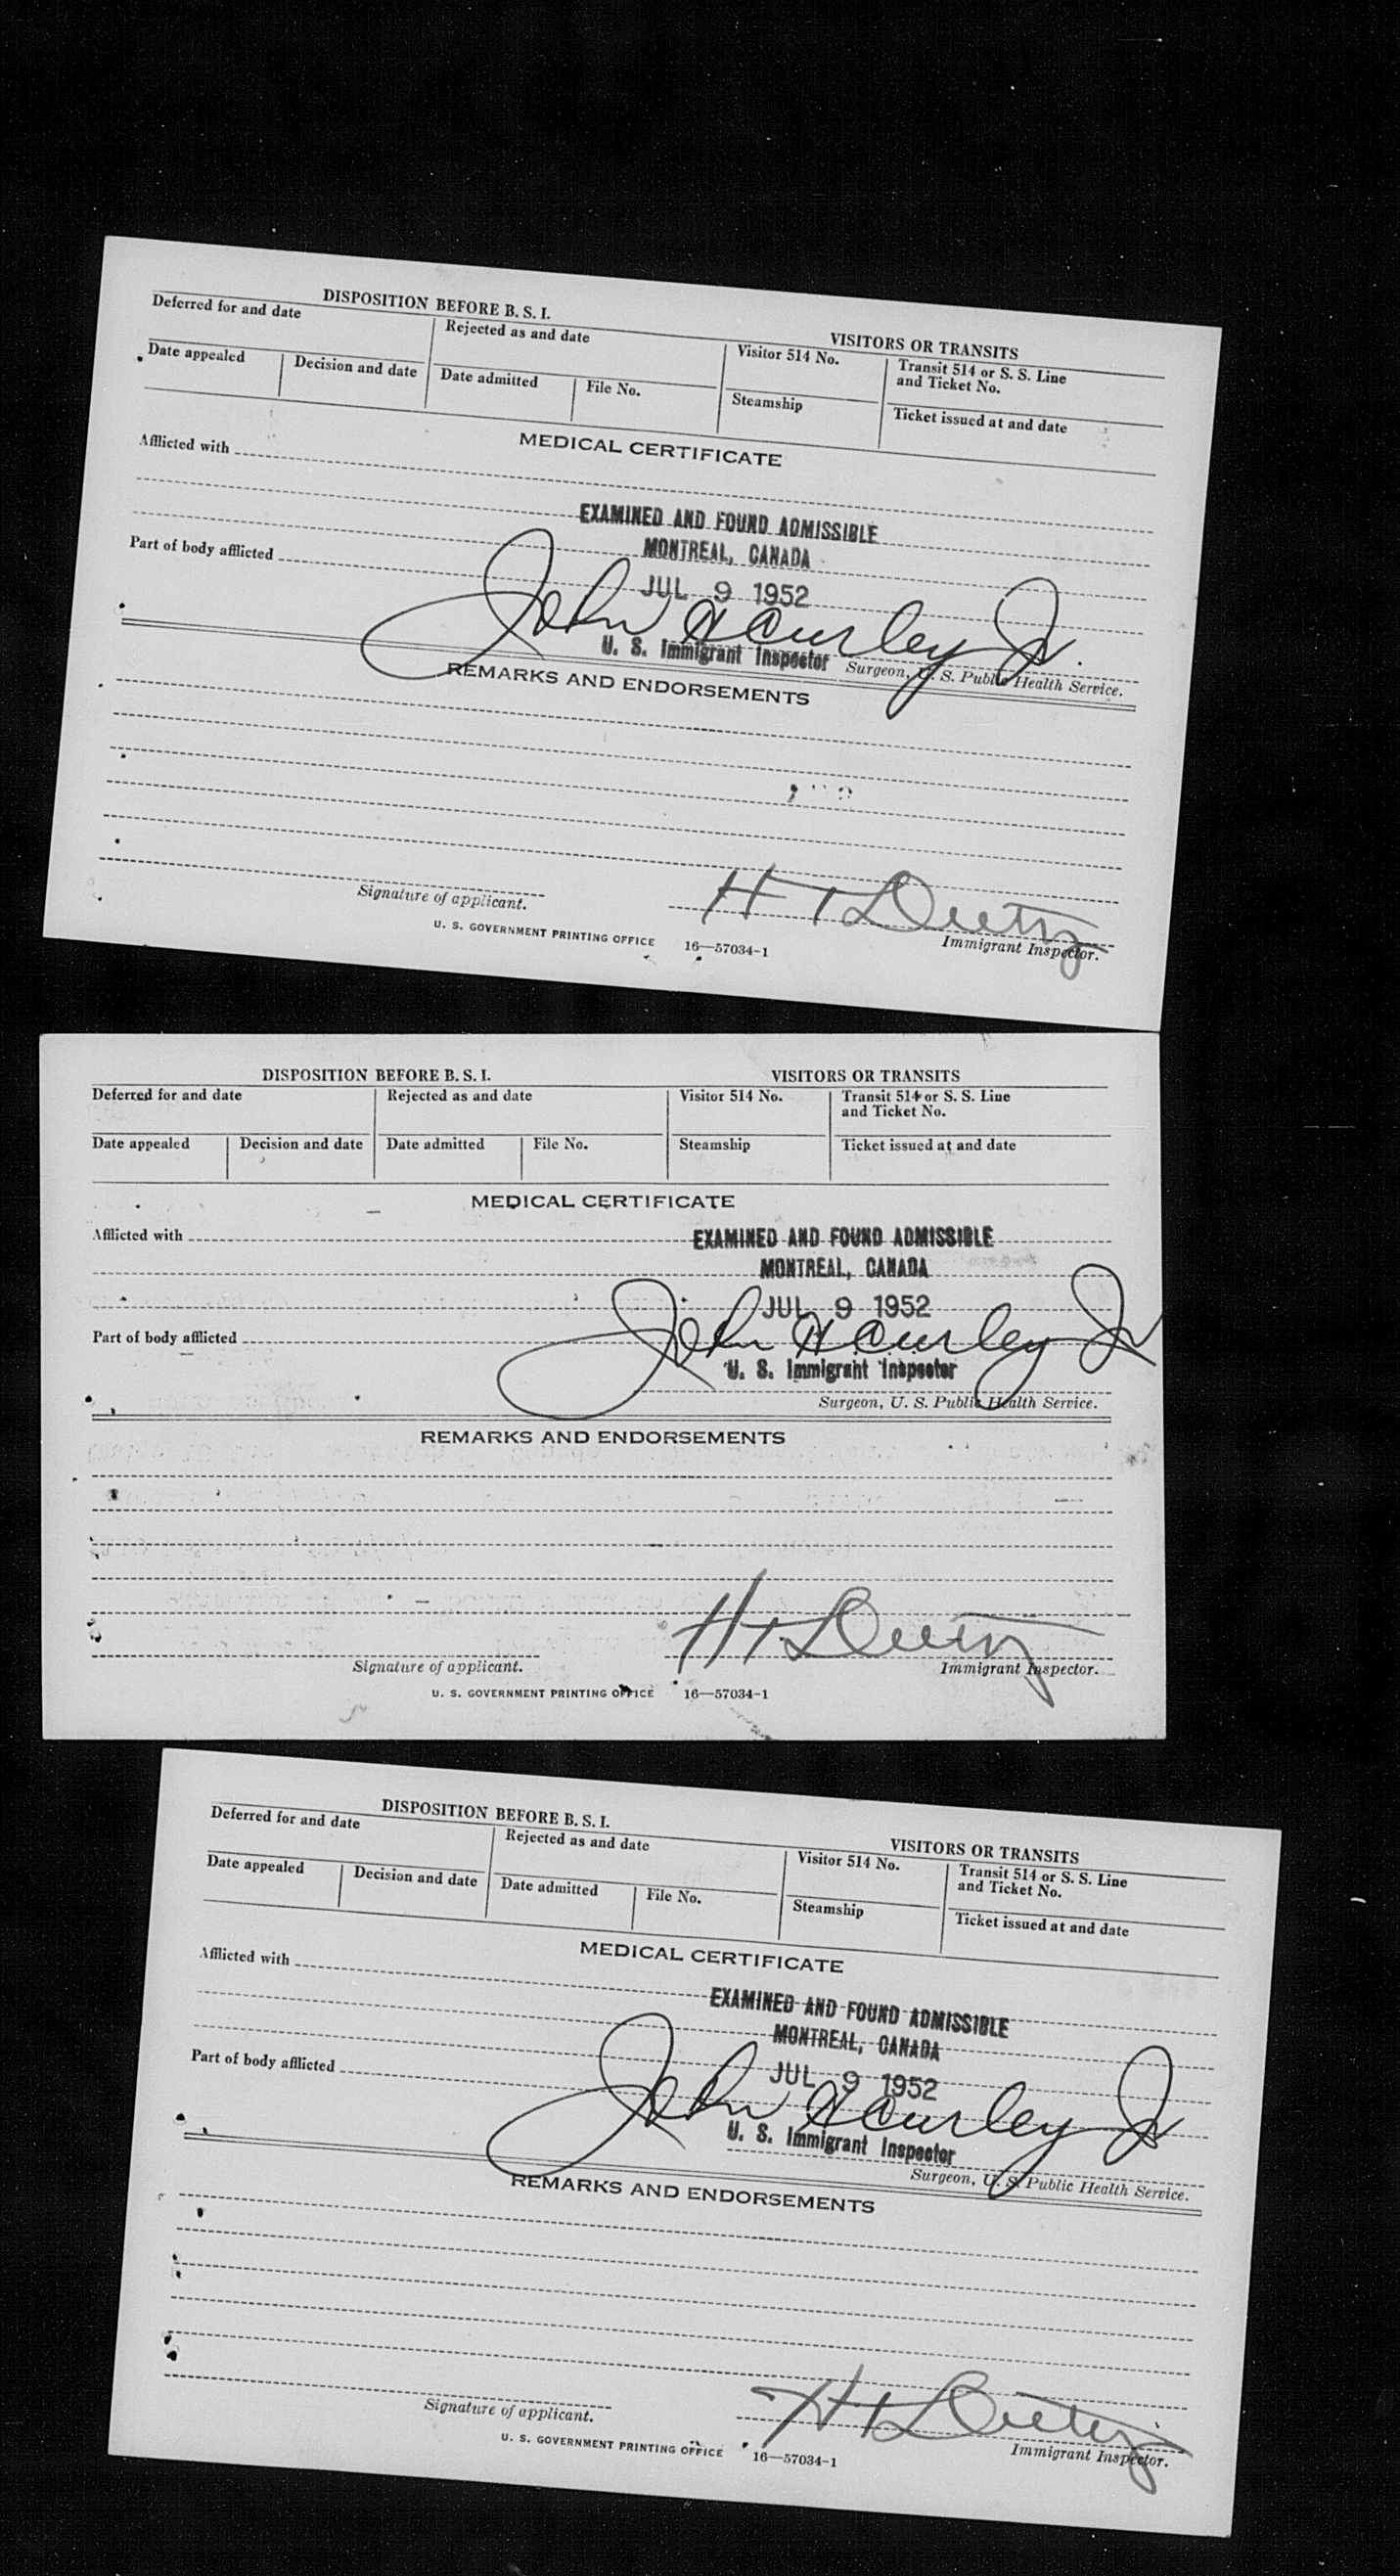 DISPOSITION BEFORE B. S. I.
VISITORS OR TRANSITS
Deferred for and date
Rejected as and date
Visitor 514 No.
Transit 514 or S. S. Line
and Ticket No.
Date appealed
Decision and date
Date admitted
File No.
Steamship
Ticket issued at and date
MEDICAL CERTIFICATE
Afflicted with
EXAMINED AND FOUND ADMISSIBLE
MONTREAL, CANADA
Part of body afflicted
JUL 9 1952
John H Curley Jr.
U. S. Immigrant Inspector
Surgeon, U. S. Public Health Service.
REMARKS AND ENDORSEMENTS
Signature of applicant.
Immigrant Inspector.
U. S. GOVERNMENT PRINTING OFFICE 16—57034-1
DISPOSITION BEFORE B. S. I.
VISITORS OR TRANSITS
Deferred for and date
Rejected as and date
Visitor 514 No.
Transit 514 or S. S. Line
and Ticket No.
Date appealed
Decision and date
Date admitted
File No.
Steamship
Ticket issued at and date
MEDICAL CERTIFICATE
Afflicted with
EXAMINED AND FOUND ADMISSIBLE
MONTREAL, CANADA
JUL 9 1952
Part of body afflicted
John H Curley Jr
U. S. Immigrant Inspector
Surgeon, U. S. Public Health Service.
REMARKS AND ENDORSEMENTS
Signature of applicant.
Immigrant Inspector.
U. S. GOVERNMENT PRINTING OFFICE 16—57034-1
DISPOSITION BEFORE B. S. I.
VISITORS OR TRANSITS
Deferred for and date
Rejected as and date
Visitor 514 No.
Transit 514 or S. S. Line
and Ticket No.
Date appealed
Decision and date
Date admitted
File No.
Steamship
Ticket issued at and date
MEDICAL CERTIFICATE
Afflicted with
EXAMINED AND FOUND ADMISSIBLE
MONTREAL, CANADA
Part of body afflicted
JUL 9 1952
John H Curley Jr
U. S. Immigrant Inspector
Surgeon, U. S. Public Health Service.
REMARKS AND ENDORSEMENTS
Signature of applicant.
Immigrant Inspector.
U. S. GOVERNMENT PRINTING OFFICE 16—57034-1